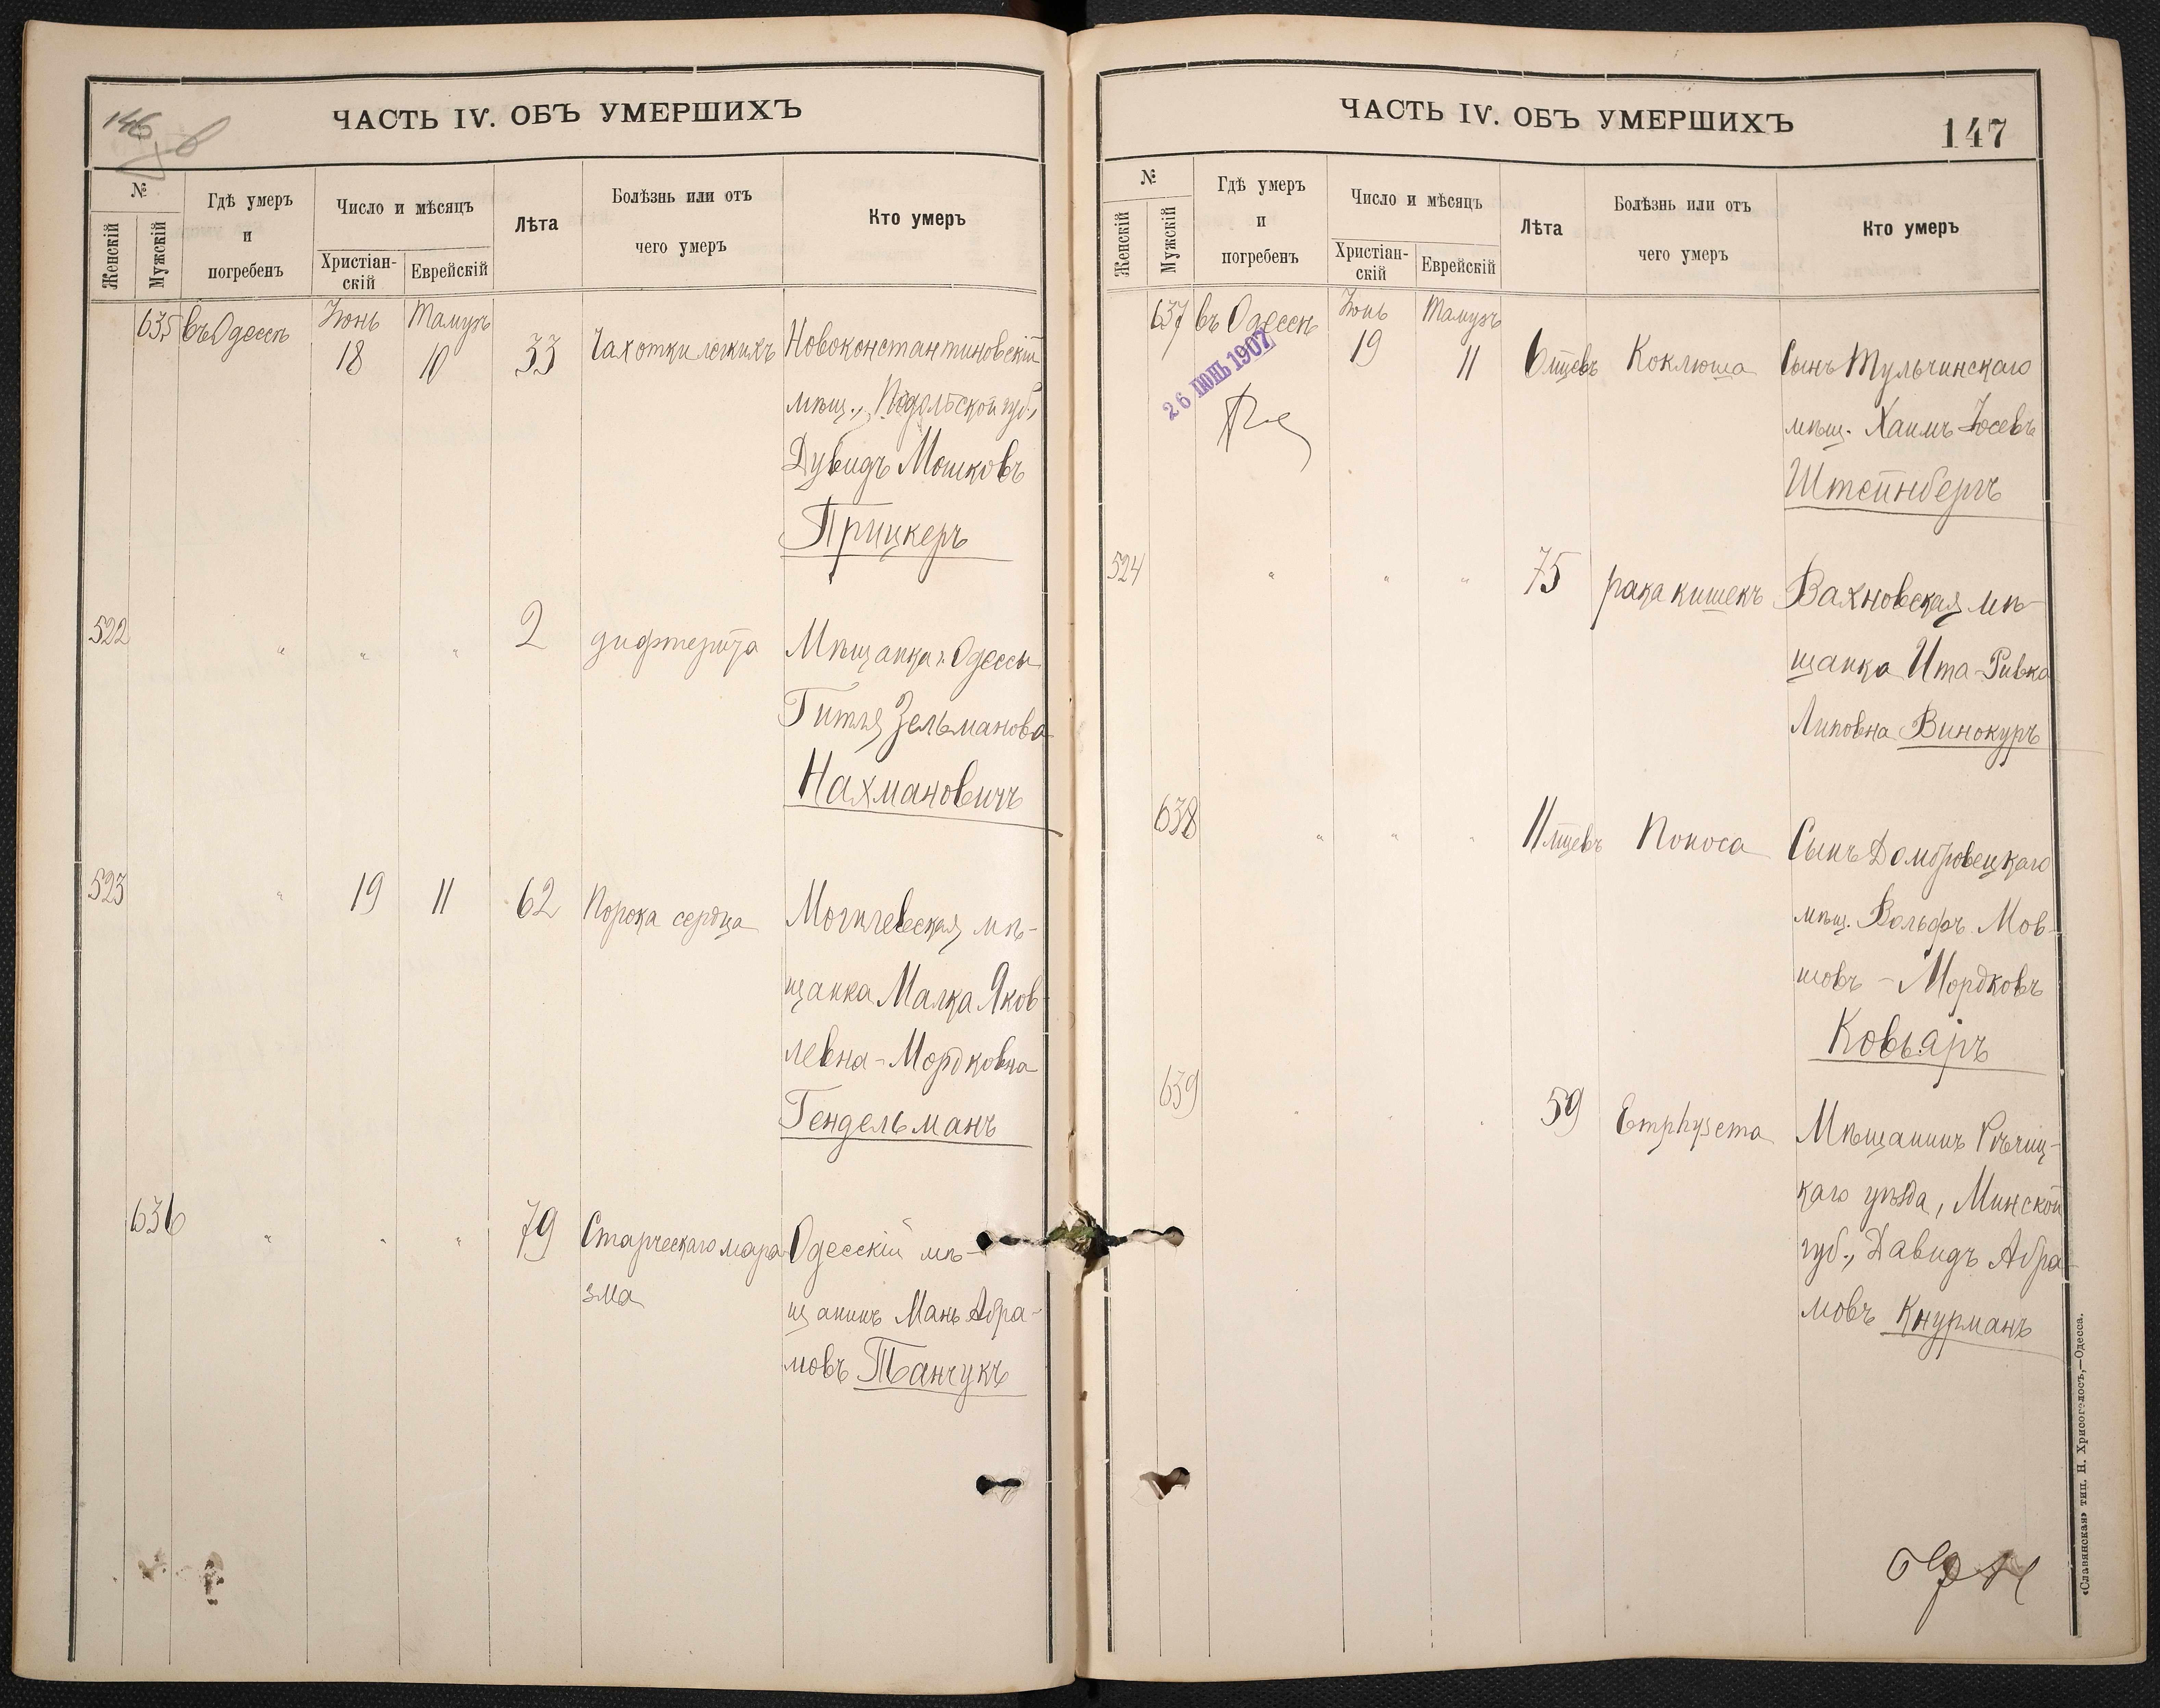 146
ЧАСТЬ IV. ОБЪ УМЕРШИХЪ
№
Женскій
Мужскій
Гдѣ умеръ
и
погребенъ
Число и мѣсяцъ
Христіан-
скій
Еврейскій
Лѣта
Болѣзнь или отъ
чего умеръ
Кто умеръ
635 въ Одессѣ Іюнь 18 Тамузъ 10 33 Чахотки легкихъ Новоконстантиновскій
мѣщ., Подольской губ.,
Дувидъ Мошковъ
Прицкеръ
522 " " " 2 дифтерита Мѣщанка г. Одессы
Гитля Зельманова
Нахмановичъ
523 " 19 11 62 Порока сердца Могилевская мѣ-
щанка Малка Яков-
левна-Мордковна
Гендельманъ
636 " " " 79 Старческаго мара- Одесскій мѣ-
зма
щанинъ Мань Абра-
мовъ Танчукъ
ЧАСТЬ IV. ОБЪ УМЕРШИХЪ
147
№
Женскій
Мужскій
Гдѣ умеръ
и
погребенъ
Число и мѣсяцъ
Христіан-
скій
Еврейскій
Лѣта
Болѣзнь или отъ
чего умеръ
Кто умеръ
637 въ Одессѣ Іюнь 19 Тамузъ 11 6 мцевъ Коклюша Сынъ Тульчинскаго
26 ІЮНЬ 1907
мѣщ. Хаимъ Іосевъ
Штейнбергъ
524 " " " 75 рака кишекъ Вахновская мѣ-
щанка Ита-Ривка
Липовна Винокуръ
638 " " " 11 мцевъ Поноса Сынъ Домбровецкаго
мѣщ. Вольфъ Мов-
шовъ-Мордковъ
Ковьаръ
639 " " " 59 Emphysema Мѣщанинъ Рѣчиц-
каго уѣзда, Минской
губ., Давидъ Абра-
мовъ Кнурманъ
«Славянская» тип. Н. Хрисогелосъ,—Одесса.